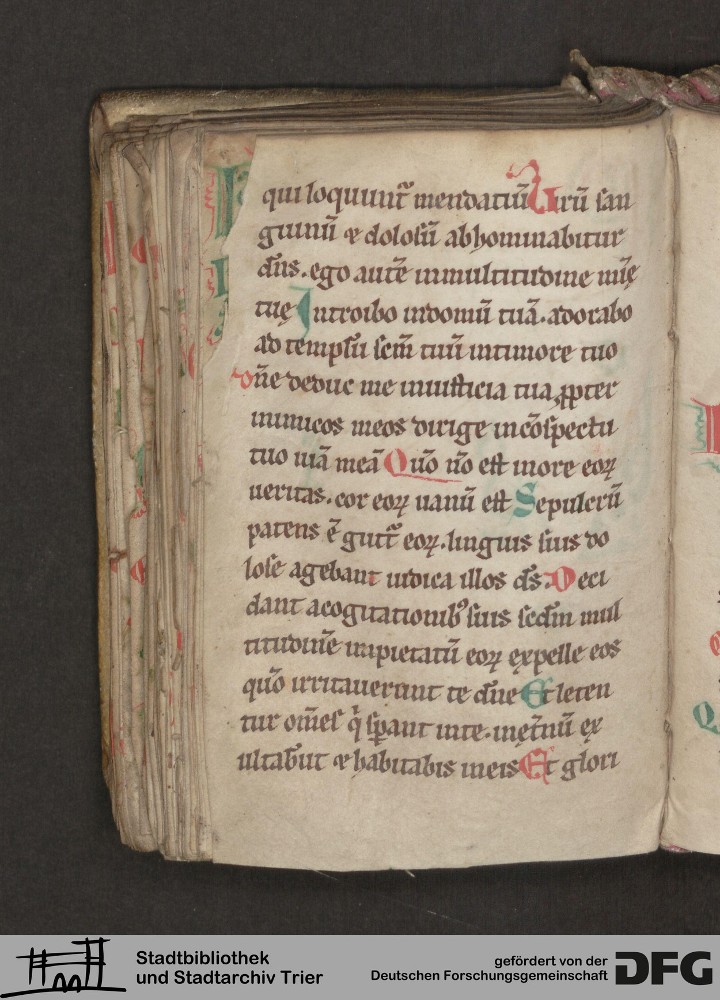 qui loquunt᷑ mendatiū Uirū san
guinū ⁊ dolosū abhominabitur
dn̄s. ego autē inmultitudine mīę
tuę Introibo indomū tuā. adorabo
ad templū scm̄ tuū intimore tuo
Dn̄e deduc me iniusticia tua ꝓpter
inimicos meos dirige incōspectu
tuo uiā meā Quō nō est inore eoꝝ
ueritas. cor eoꝝ uanū est Sepulcrū
patens ē gutt᷑ eoꝝ. linguis suis do
lose agebant iudica illos ds̄. Deci
dant acogitationibꝰ suis scdm̄ mul
titudinē impietatū eoꝝ expelle eos
quō irritauerunt te dn̄e Et leten
tur om̄es q̇ sꝑant inte. inęt̄nū ex
ultab̄unt ⁊ habitabis ineis Et glori
Stadtbibliothek
und Stadtarchiv Trier
gefördert von der
Deutschen Forschungsgemeinschaft
DFG